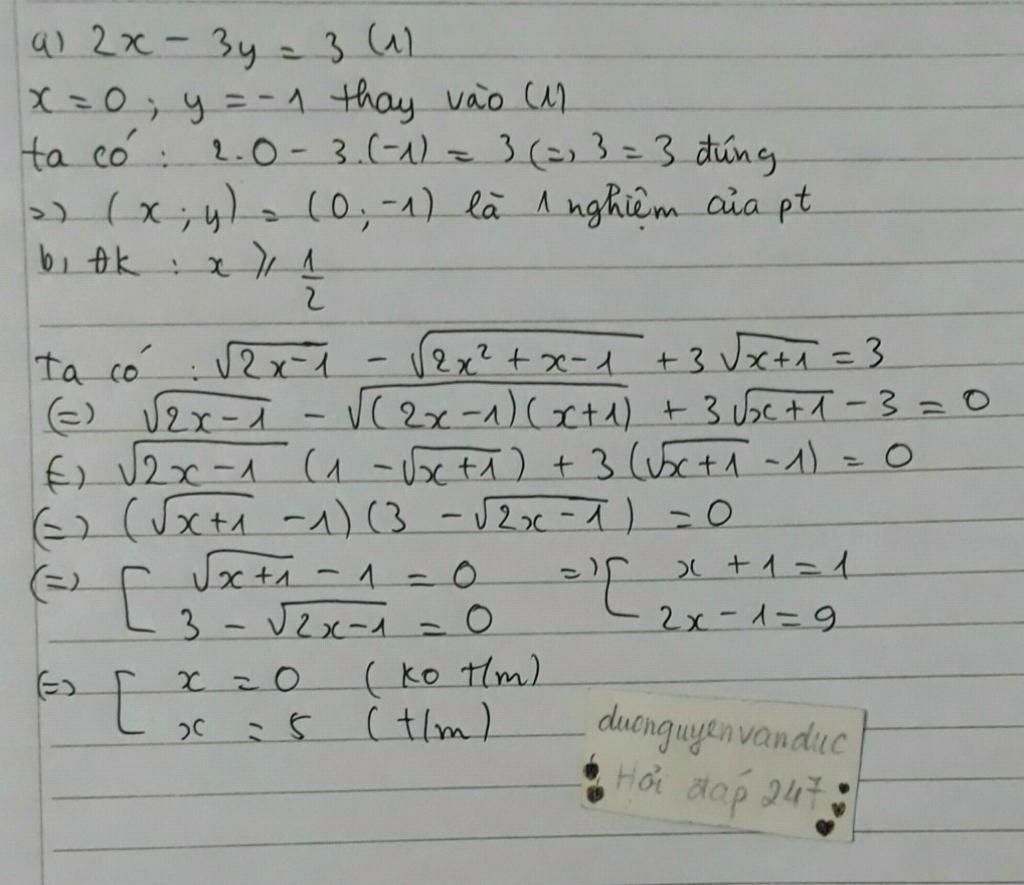 a) 2x - 3y = 3 (1)
x = 0 ; y = -1 thay vào (1)
ta có : 2.0 - 3.(-1) = 3 (=) 3 = 3 đúng
=) (x ; y) = (0; -1) là 1 nghiệm của pt
b, ĐK : x ⩾ 1/2
Ta có : √(2x-1) - √(2x² + x - 1) + 3√(x+1) = 3
(=) √(2x-1) - √((2x-1)(x+1)) + 3√(x+1) - 3 = 0
(=) √(2x-1) (1 - √(x+1)) + 3(√(x+1) - 1) = 0
(=) (√(x+1) - 1)(3 - √(2x-1)) = 0
(=) [ √(x+1) - 1 = 0 =) [ x + 1 = 1
3 - √(2x-1) = 0 2x - 1 = 9
(=) [ x = 0 (ko t/m)
x = 5 (t/m)
duonguyenvanduc
Hỏi đáp 247